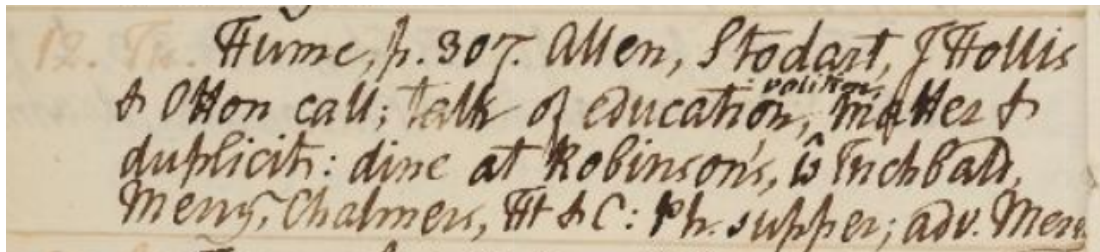 12. Th. Hume, p. 307. Allen, Stodart, J Hollis
& Otton call; talk of education, volition, matter &
duplicity: dine at Robinson's, ŵ Inchbald,
Merry, Chalmers, Ht & C: Ph. supper; adv. Merry